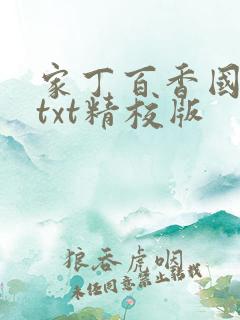 家丁百香國
txt精校版
狼吞虎咽
未经同意禁止转载